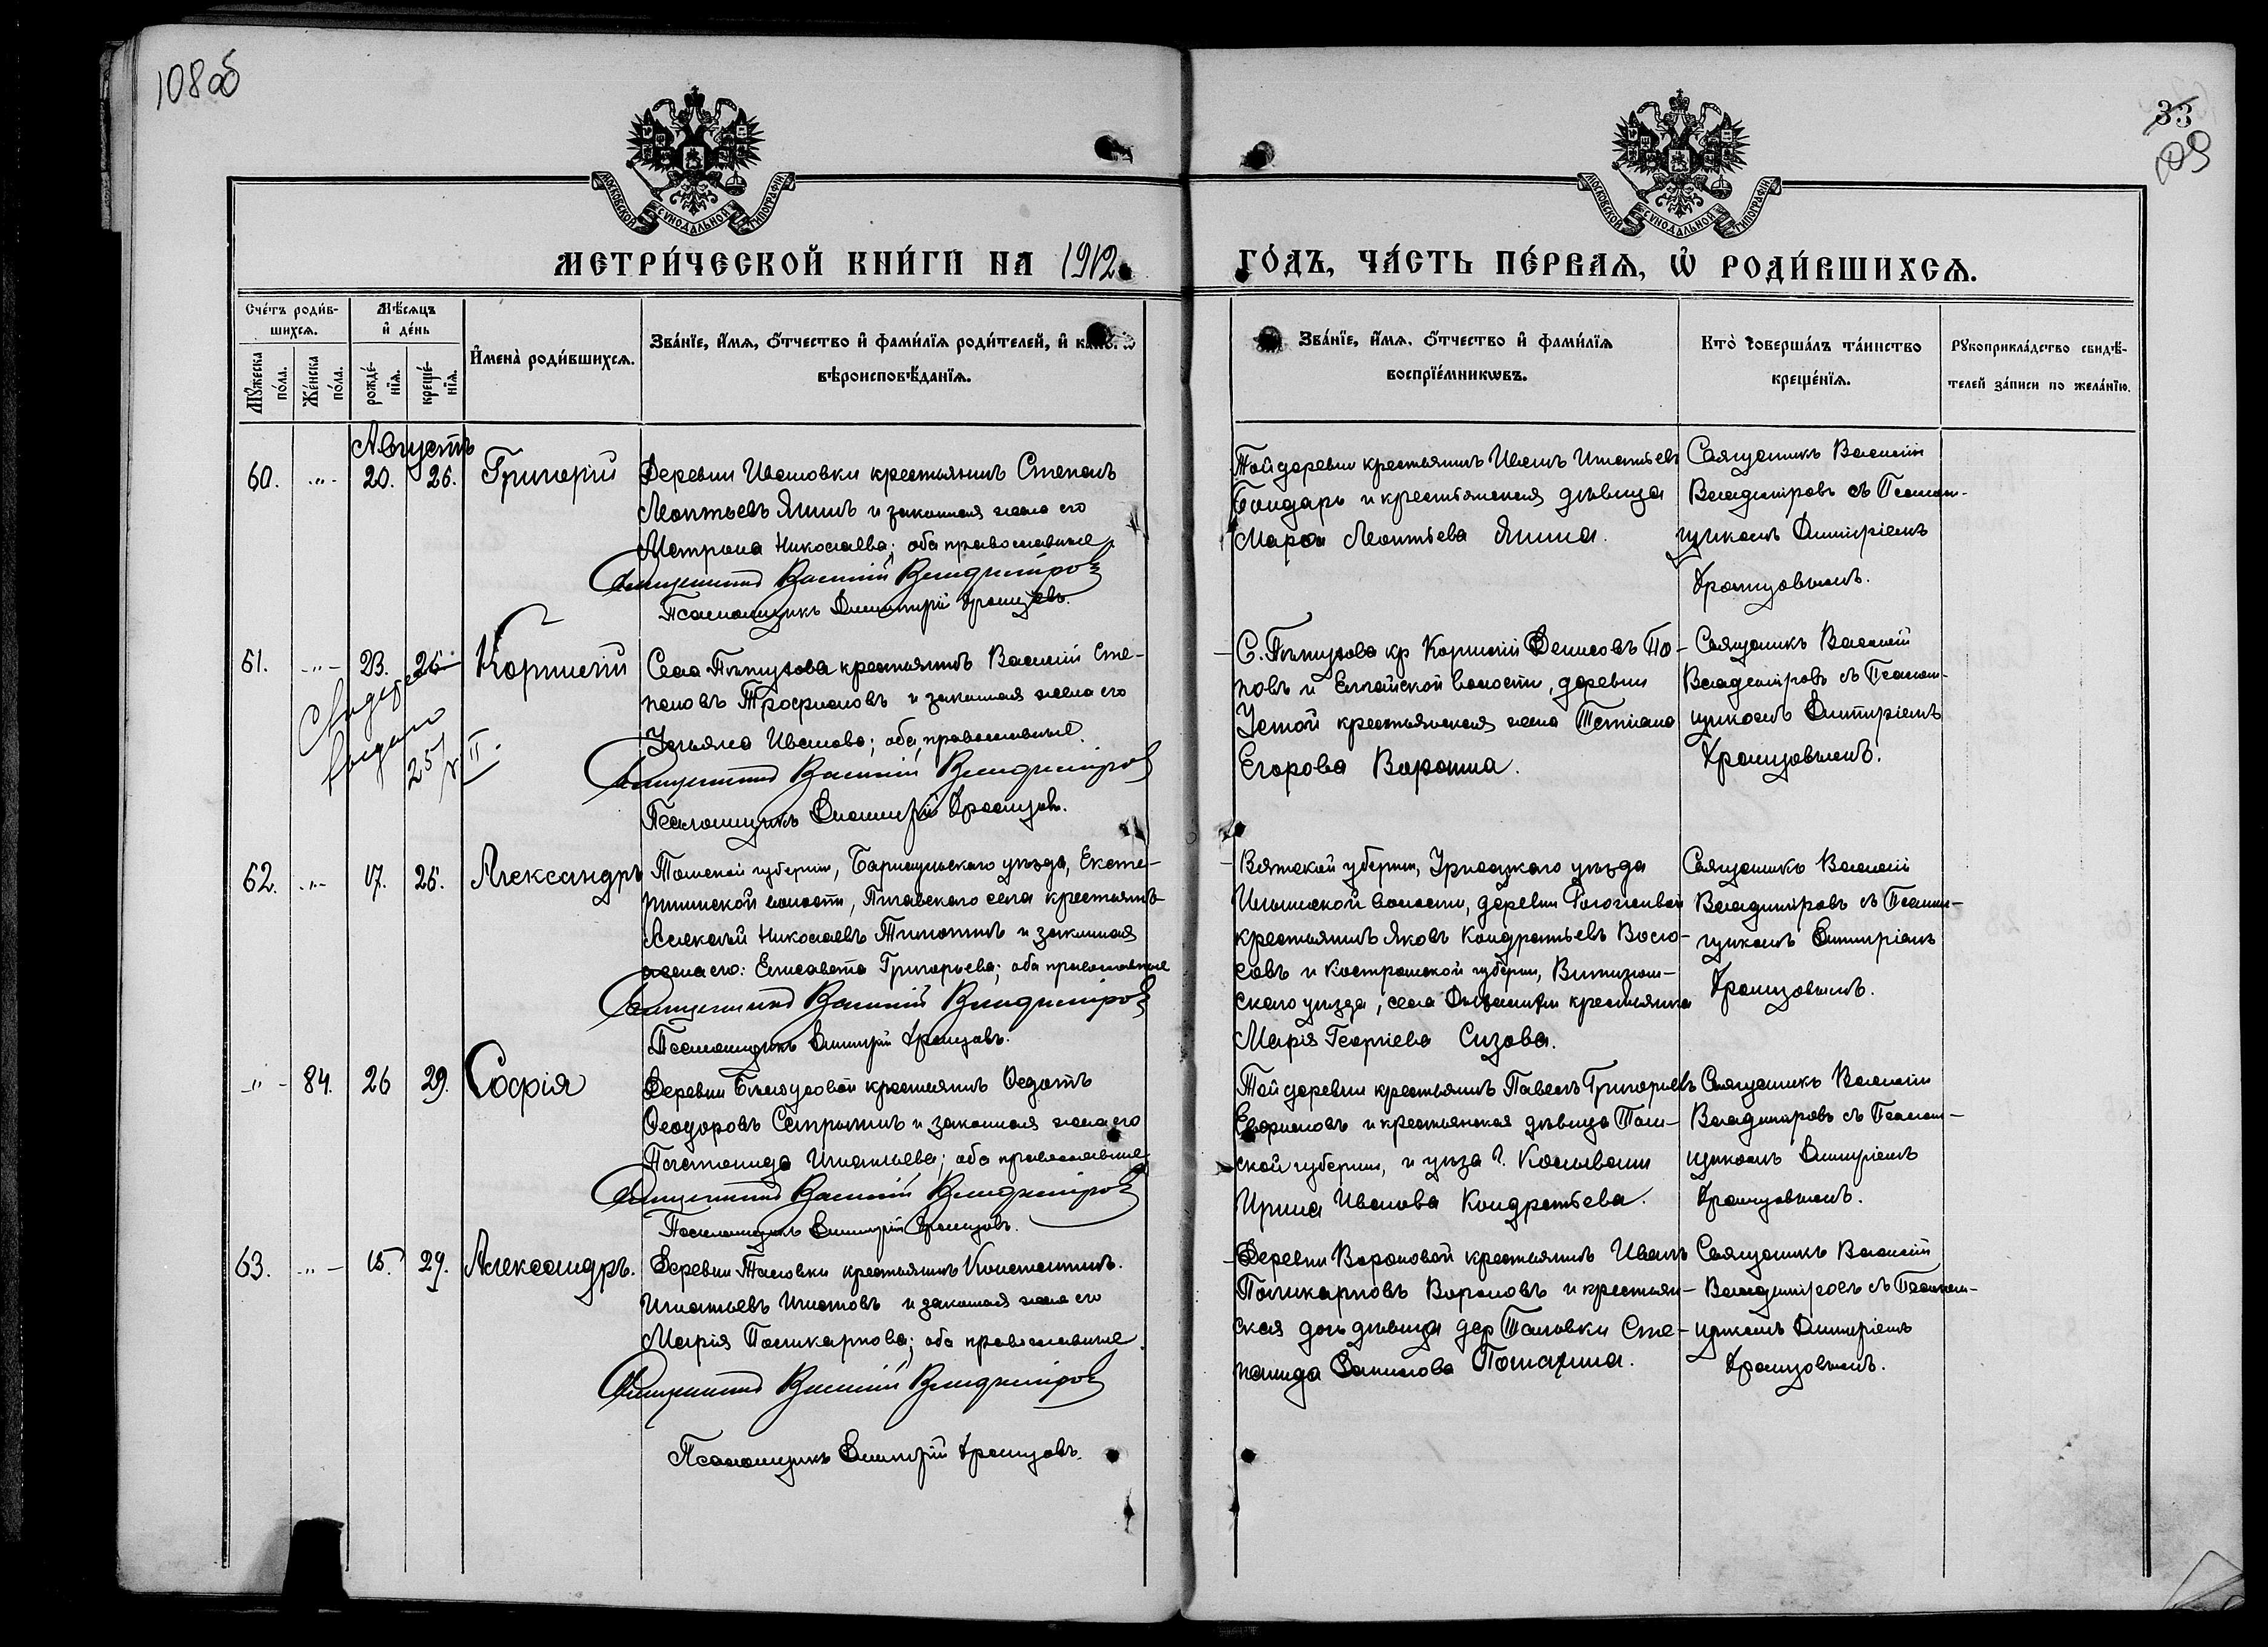 108 об
33
109
МОСКОВСКОЙ СѴНОДАЛЬНОЙ ТИПОГРАФІИ
МОСКОВСКОЙ СѴНОДАЛЬНОЙ ТИПОГРАФІИ
МЕТРИ́ЧЕСКОЙ КНИ́ГИ НА 1912
ГО́ДЪ, ЧА́СТЬ ПЕ́РВАЯ, Ѡ҆ РОДИ́ВШИХСЯ.
Сче́тъ роди́в-
шихся.
Мꙋ́жеска по́ла.
Же́нска по́ла.
Мѣ́сяцъ
и҆ де́нь
рожде́-
нїя.
креще́-
нїя.
И҆мена̀ роди́вшихся.
Зва́нїе, и҆́мя, ѻ҆́тчество и҆ фами́лїя роди́телей, и҆
вѣроисповѣ́данїя.
Зва́нїе, и҆́мя, ѻ҆́тчество и҆ фами́лїя
воспрїе́мникѡвъ.
Кто̀ соверша́лъ та́инство
креще́нїя.
Рꙋкоприкла́дство свидѣ́-
телей за́писи по жела́нїю.
Августъ
60. -"- 20. 26. Григорій
Деревни Ивановки крестьянинъ Степанъ
Леонтьевъ Яшинъ и законная жена его
Матрона Николаева; оба православные.
Священникъ Василій Владиміровъ
Псаломщикъ Димитрій Храмцовъ.
Той деревни крестьянинъ Иванъ Игнатьевъ
Бондарь и крестьянская дѣвица
Марѳа Леонтьева Яшина.
Священникъ Василій
Владиміровъ съ Псалом-
щикомъ Димитріемъ
Храмцовымъ.
61. -"- 23. 26. Корнилій
Свидет
выдано
25/II.
Села Пѣтухова крестьянинъ Василій Сте-
пановъ Трофимовъ и законная жена его
Ульяна Иванова; оба православные.
Священникъ Василій Владиміровъ
Псаломщикъ Димитрій Храмцовъ.
С. Пѣтухова кр Корнилій Денисовъ По-
повъ и Елгайской волости, деревни
Устой крестьянская жена Татіана
Егорова Воронина.
Священникъ Василій
Владиміровъ съ Псалом-
щикомъ Димитріемъ
Храмцовымъ.
62. -"- 17. 26. Александръ
Томской губерніи, Барнаульскаго уѣзда, Екате-
рининской волости, села крестьянинъ
Алексѣй Николаевъ и законная
жена его: Елисавета Григорьева; оба православные
Священникъ Василій Владиміровъ
Псаломщикъ Димитрій Храмцовъ.
Вятской губерніи, уѣзда
Ильинской волости, деревни
крестьянинъ Яковъ Кондратьевъ
и Костромской губерніи,
скаго уѣзда, села крестьянка
Марія Георгіева Сизова.
Священникъ Василій
Владиміровъ съ Псалом-
щикомъ Димитріемъ
Храмцовымъ.
-"- 84. 26 29. Софія
Деревни Бѣлоусовой крестьянинъ Ѳедотъ
Ѳеодоровъ и законная жена его
Игнатьева; оба православные
Священникъ Василій Владиміровъ
Псаломщикъ Димитрій Храмцовъ.
Той деревни крестьянинъ Павелъ Григорьевъ
и крестьянская дѣвица Том-
ской губерніи, и уѣзда г. Колывани
Ирина Иванова Кондратьева.
Священникъ Василій
Владиміровъ съ Псалом-
щикомъ Димитріемъ
Храмцовымъ.
63. -"- 15. 29. Александръ.
Деревни Таловки крестьянинъ Константинъ.
Игнатьевъ Игнатовъ и законная жена его
Марія Поликарпова; оба православные.
Священникъ Василій Владиміровъ
Псаломщикъ Димитрій Храмцовъ.
Деревни Вороновой крестьянинъ Иванъ
Поликарповъ Вороновъ и крестьян-
ская дѣвица дер Таловки Сте-
панида Данилова
Священникъ Василій
Владиміровъ съ Псалом-
щикомъ Димитріемъ
Храмцовымъ.